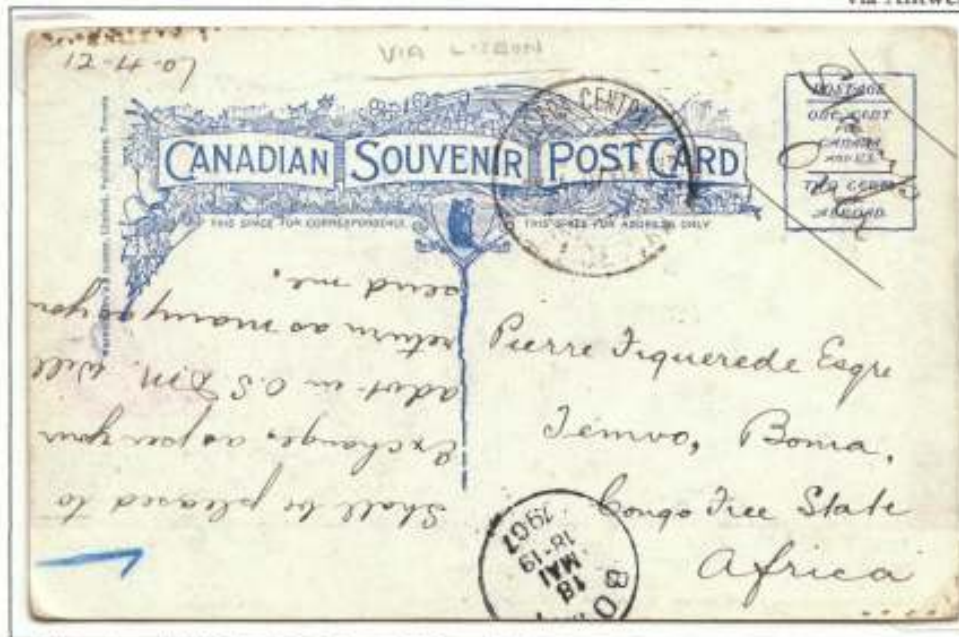 VIA LISBON
CANADIAN SOUVENIR POST CARD
THIS SPACE FOR CORRESPONDENCE
THIS SPACE FOR ADDRESS ONLY
POSTAGE
ONE CENT
FOR
CANADA
AND U.S.
TWO CENTS
ABROAD
Pierre Figuerede Esqre
Temvo, Boma,
Congo Free State
Africa
Shall be pleased to
Exchange, as per your
advt in O.S
will
return as many as you
send me.
BO
18
MAI
18-19
1907
CENTRAL